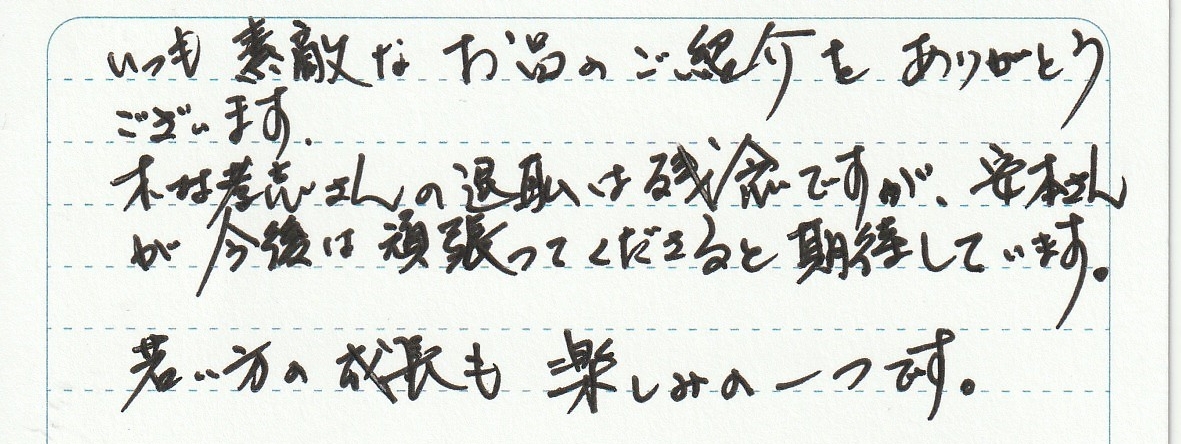 いつも素敵なお品のご紹介をありがとう
ございます。
木村孝志さんの退職は残念ですが、安本さん
が今後は頑張ってくださると期待しています。
若い方の成長も楽しみの一つです。